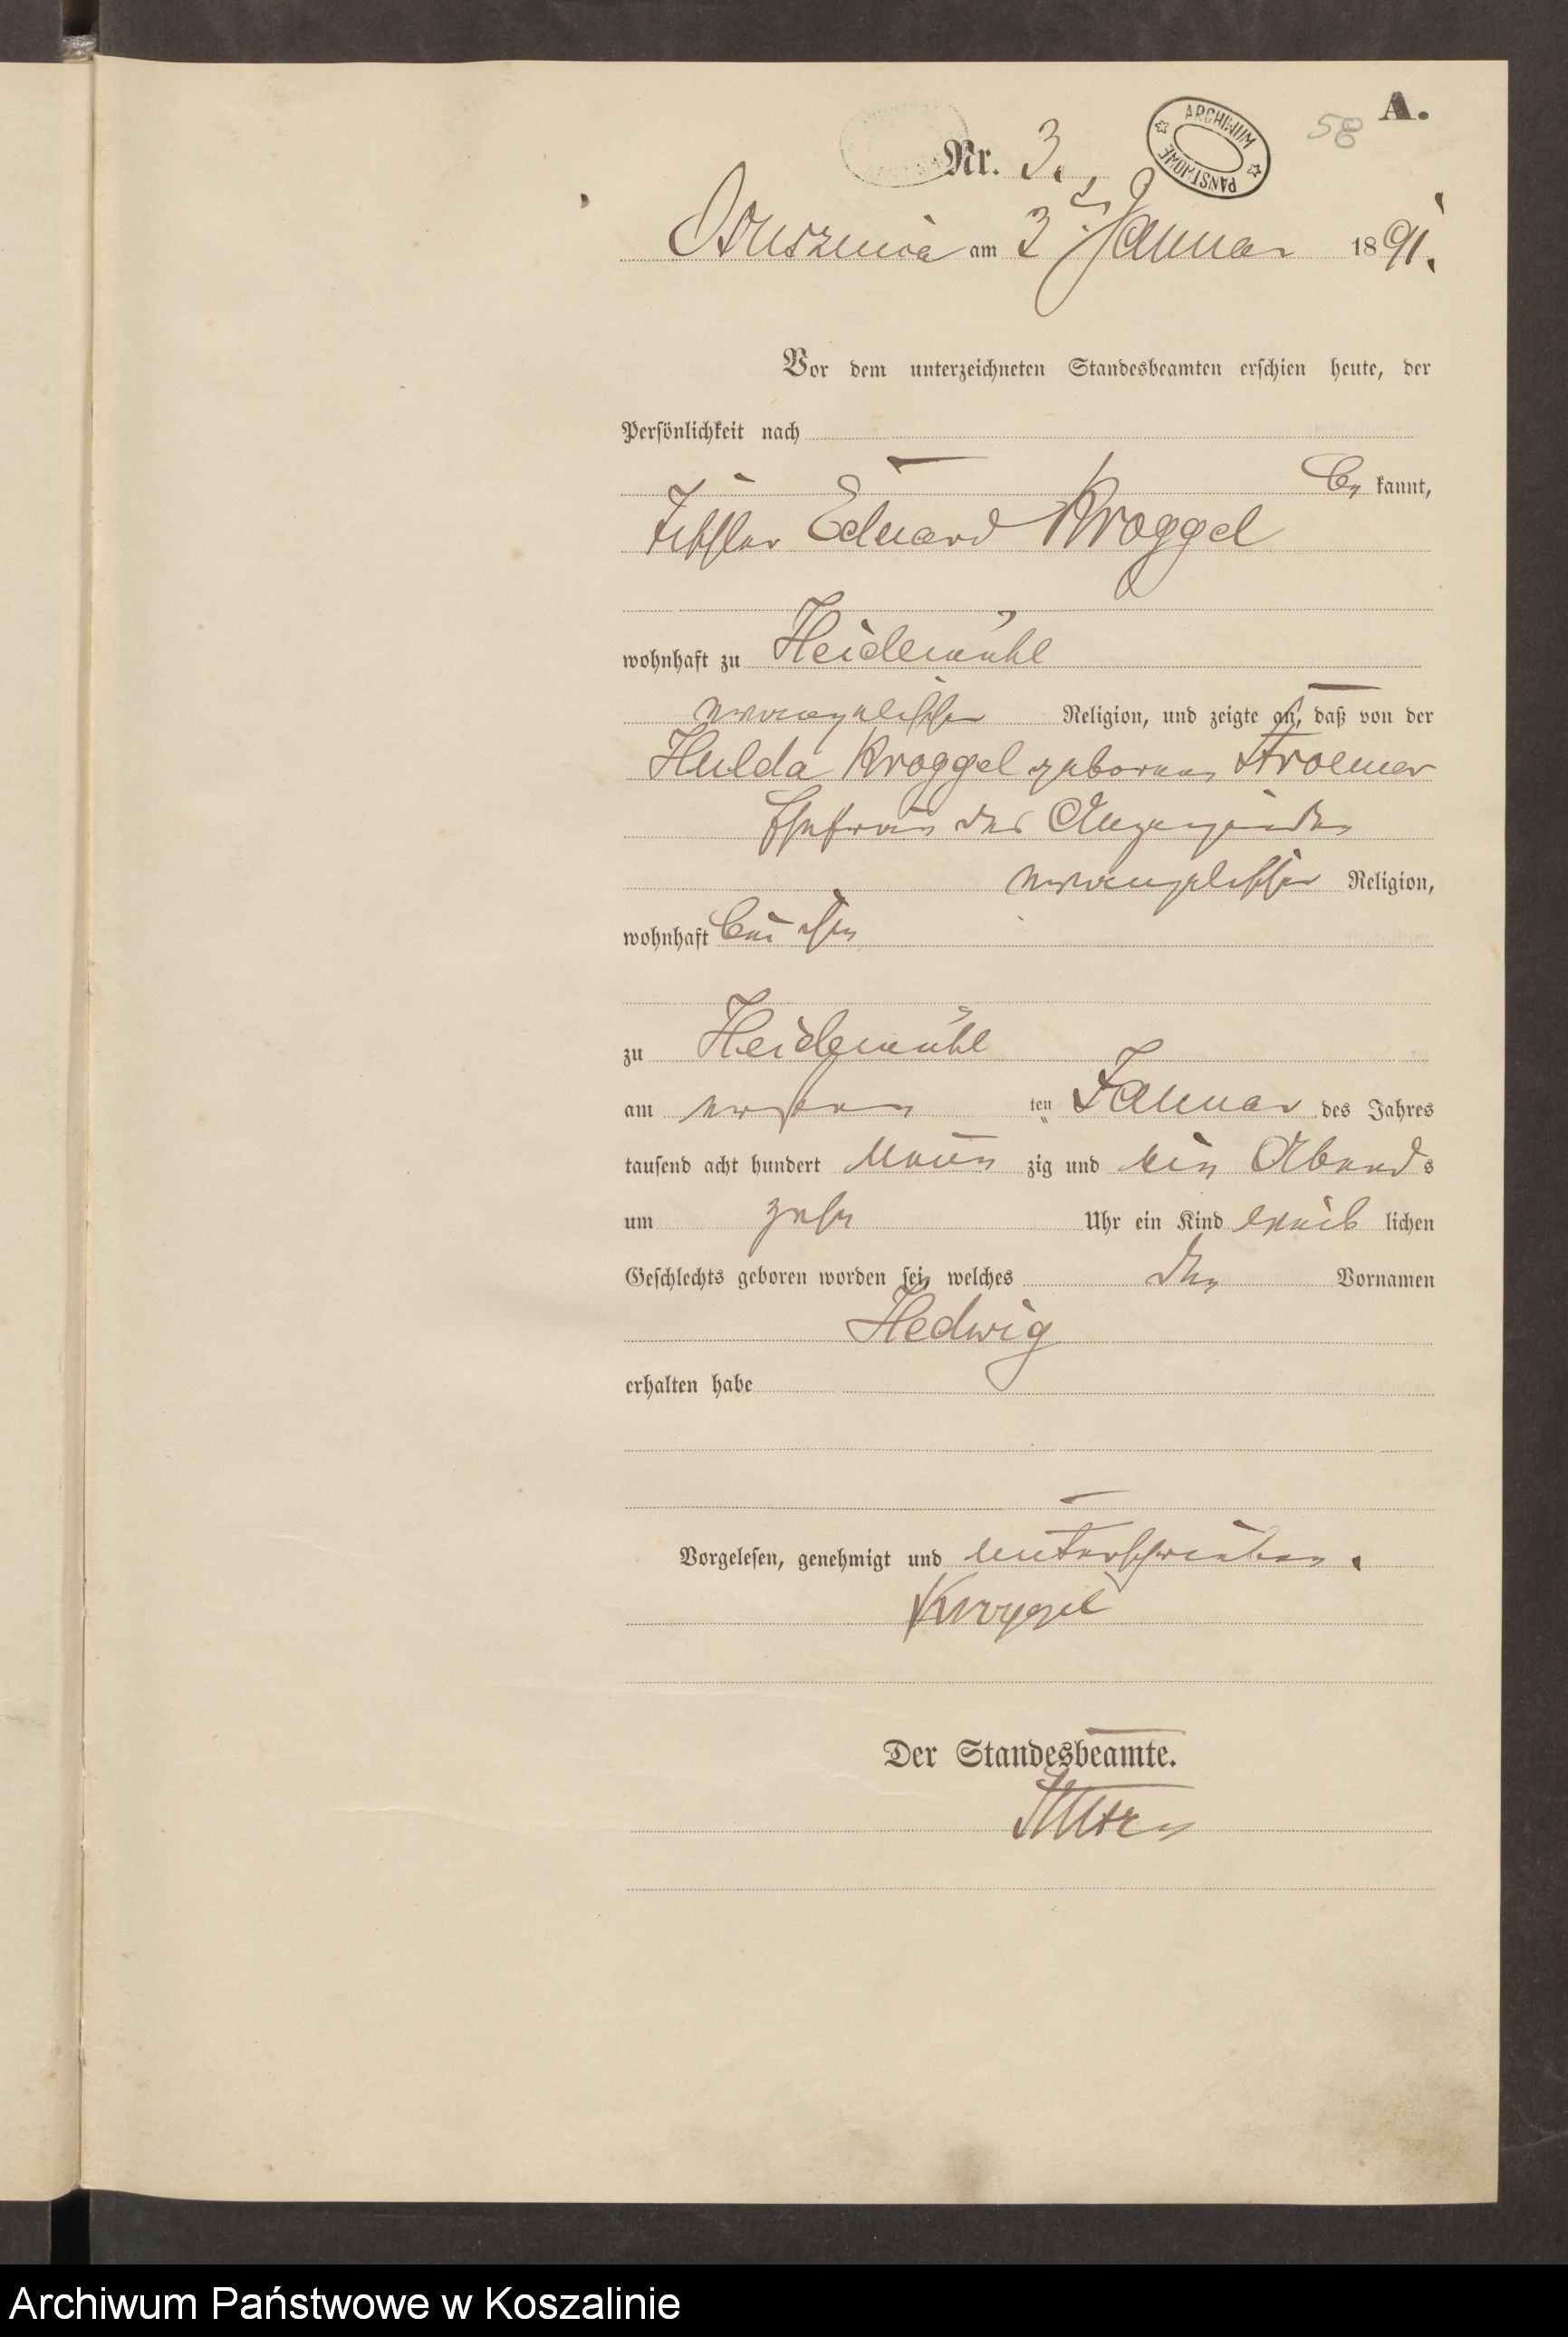 A.
58
ARCHIWUM PAŃSTWOWE
Nr. 3.
am 3ten Januar 1891.
Vor dem unterzeichneten Standesbeamten erschien heute, der
Persönlichkeit nach
be kannt,
Tischler Eduard Kroggel
wohnhaft zu Heidemühl
evangelischer Religion, und zeigte an, daß von der
Hulda Kroggel geborenen Stroemer
Ehefrau des Anzeigenden
evangelischer Religion,
wohnhaft bei ihm
zu Heidemühl
am ersten ten Januar des Jahres
tausend acht hundert neun zig und ein Abend s
um zehn Uhr ein Kind weib lichen
Geschlechts geboren worden sei, welches den Vornamen
Hedwig
erhalten habe
Vorgelesen, genehmigt und unterschrieben.
Kroggel
Der Standesbeamte.
Archiwum Państwowe w Koszalinie